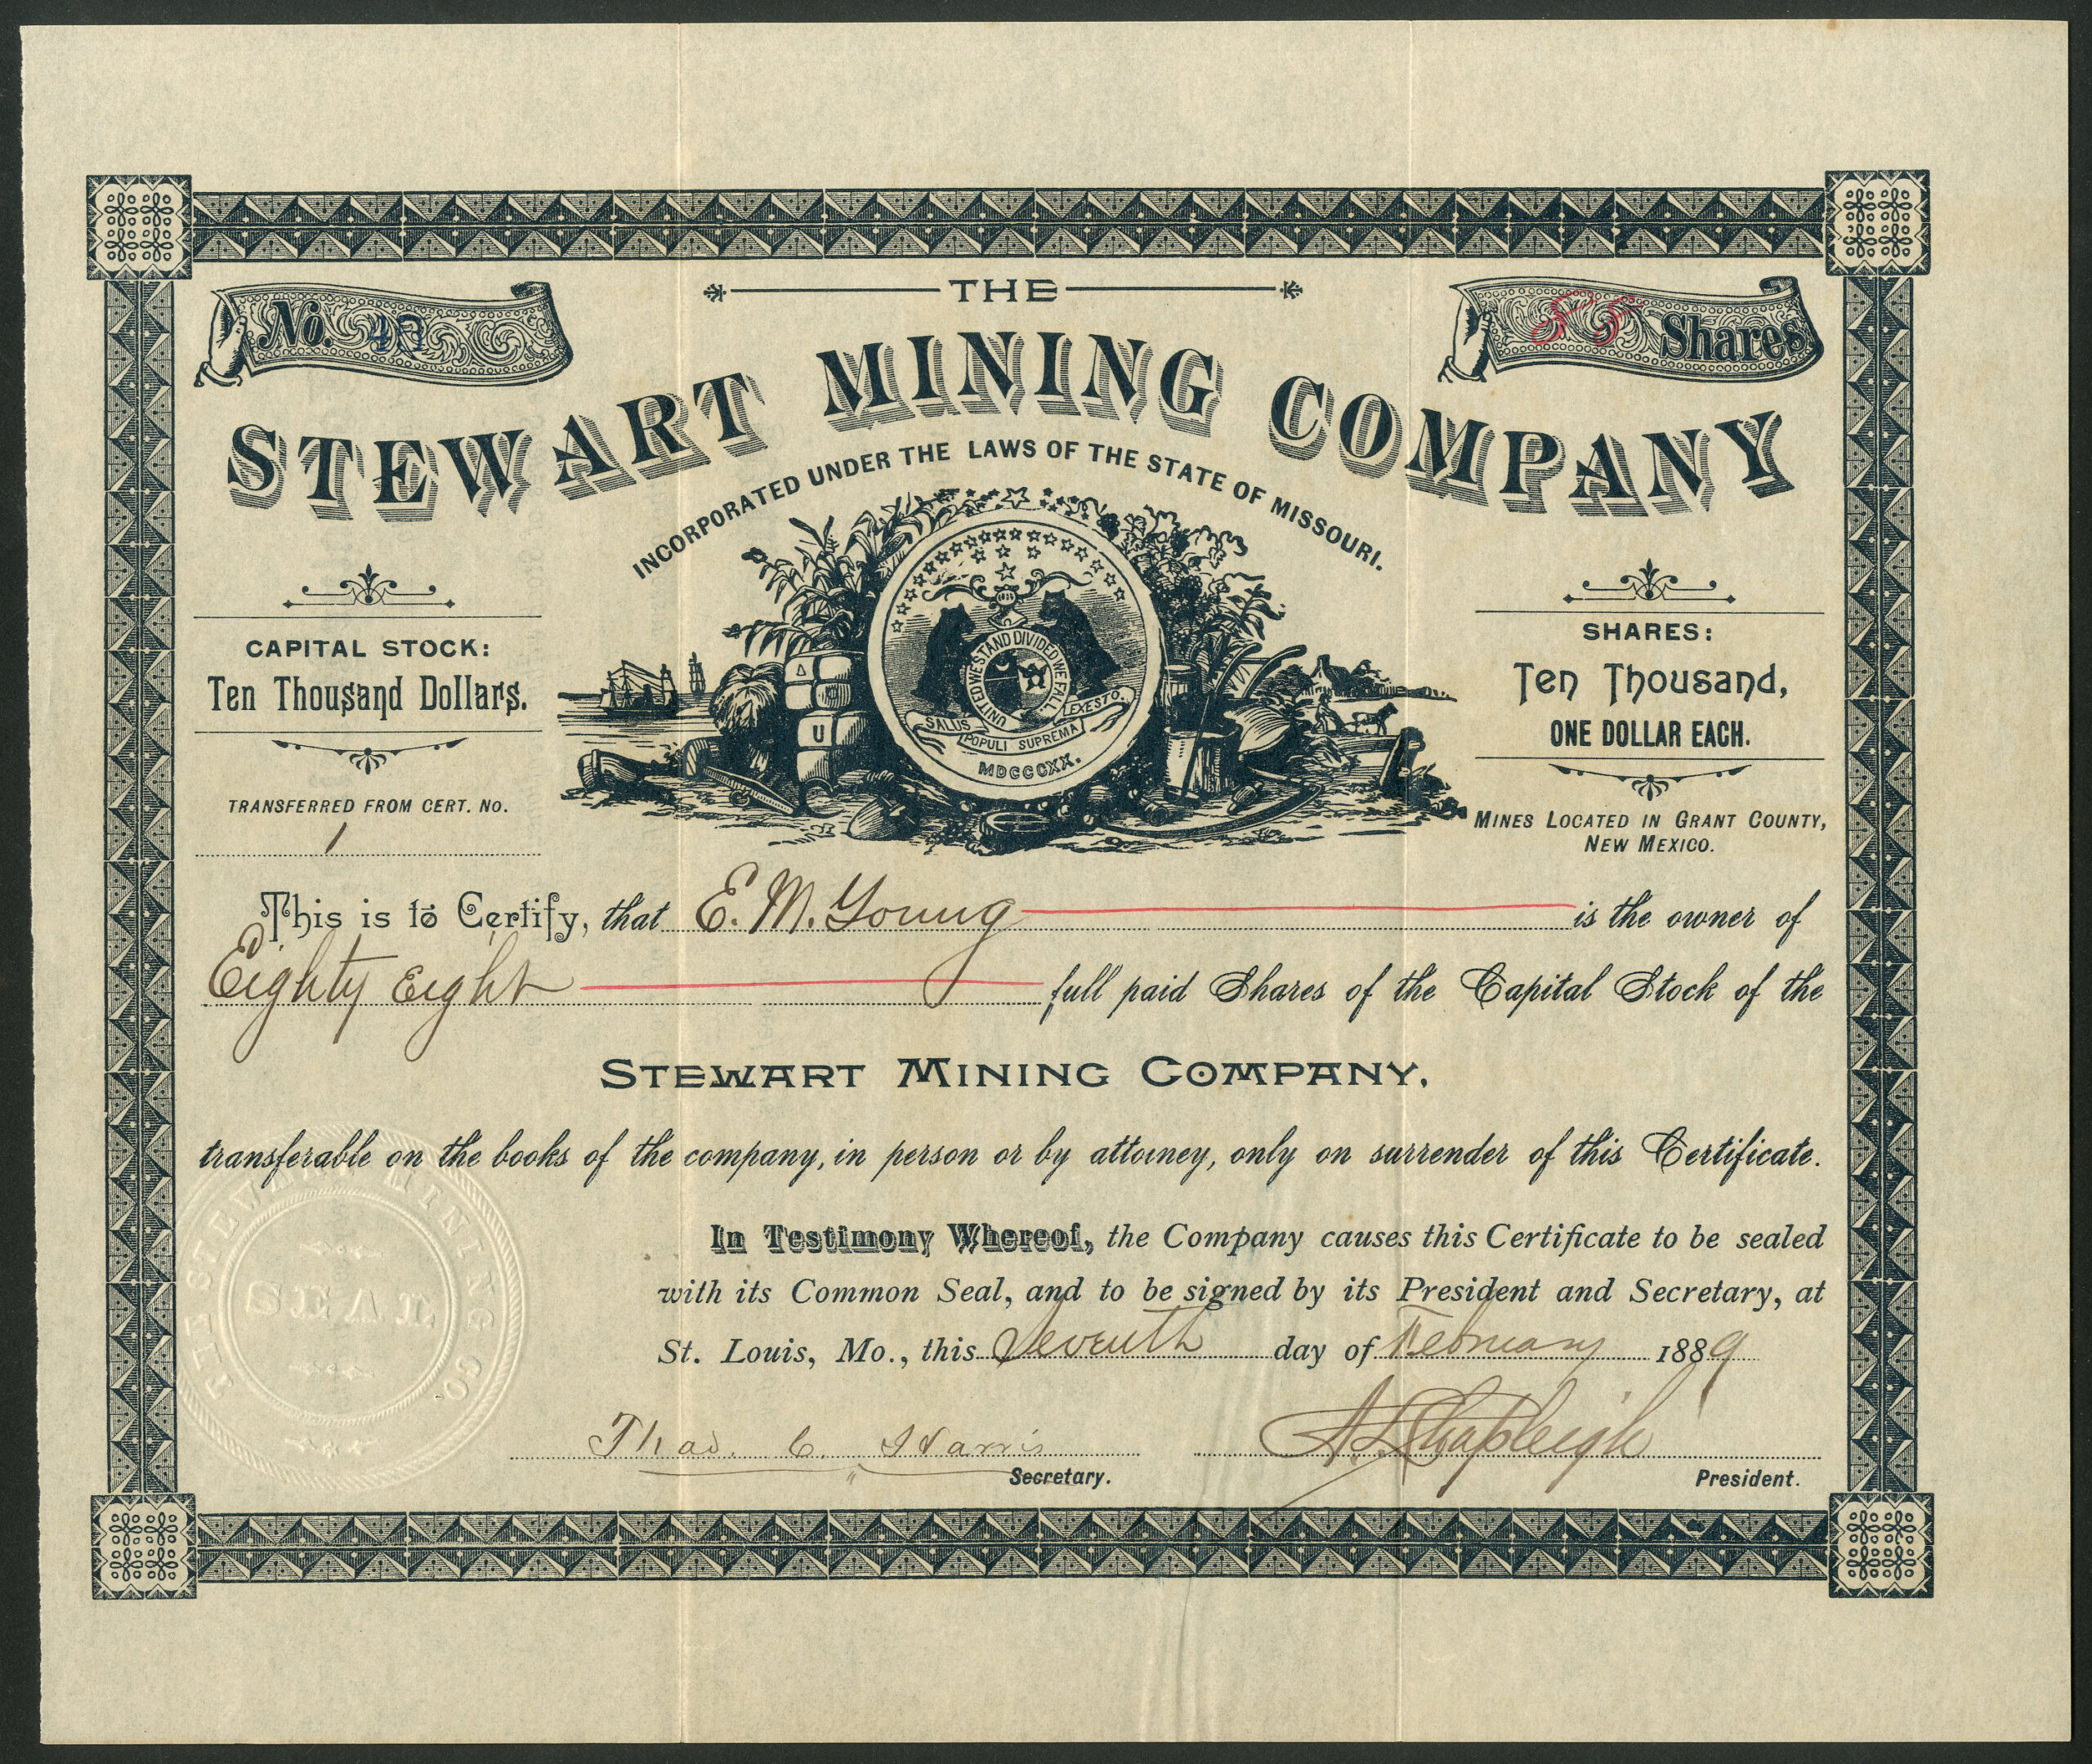 THE
No. 43
88 Shares
STEWART MINING COMPANY
INCORPORATED UNDER THE LAWS OF THE STATE OF MISSOURI.
CAPITAL STOCK:
Ten Thousand Dollars.
TRANSFERRED FROM CERT. No.
1
UNITED WE STAND DIVIDED WE FALL.
SALUS POPULI SUPREMA LEX ESTO.
MDCCCXX.
U
SHARES:
Ten Thousand,
ONE DOLLAR EACH.
MINES LOCATED IN GRANT COUNTY,
NEW MEXICO.
This is to Certify, that E. M. Young is the owner of
Eighty Eight full paid Shares of the Capital Stock of the
STEWART MINING COMPANY,
transferable on the books of the company, in person or by attorney, only on surrender of this Certificate.
In Testimony Whereof, the Company causes this Certificate to be sealed
with its Common Seal, and to be signed by its President and Secretary, at
St. Louis, Mo., this Seventh day of February 1889
THE STEWART MINING CO.
SEAL
Thad. C. Harris
Secretary.
A. L. Shapleigh
President.